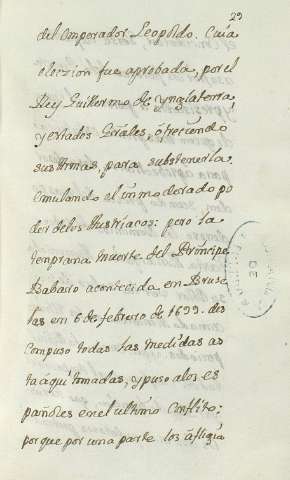 29
del emperador Leopoldo. Cuia
eleczion fue aprobada, por el
Rey Guillermo de ynglaterra,
y estados Grâles, ofreciendo
sus Armas, para substenerla.
emulando el inmoderado po
der delos Austriacos: pero la
temprana muerte del Prinzipe
Babaro acontecida en Bruse
las en 6 de febrero de 1699. des
compuso todas las medidas as
ta aquí tomadas, y puso alos es
pañoles en el ultimo Conflito;
porque por una parte los afligia